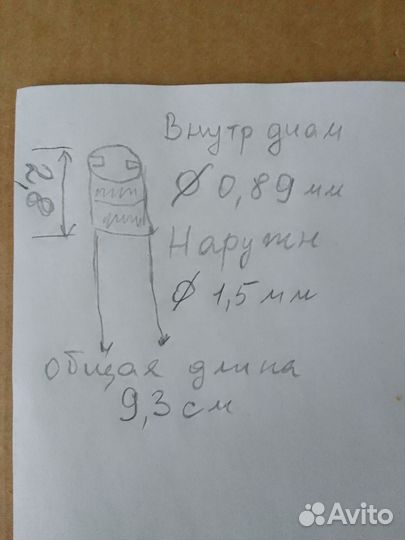 Внутр диам
2,8
Ø 0,89 мм
Наружн
Ø 1,5 мм
общая длина
9,3 см
Avito